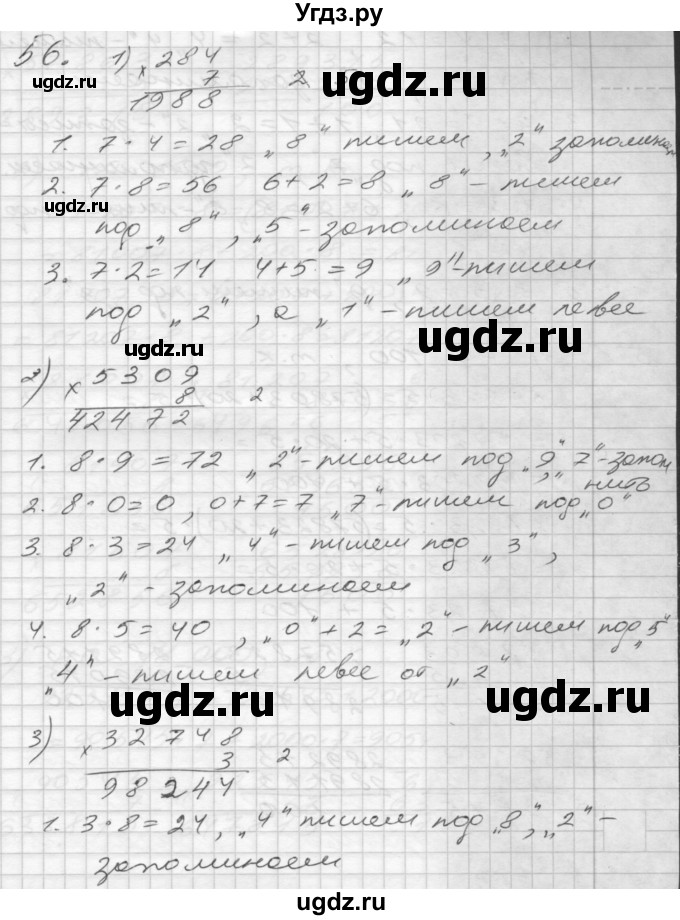 Угдз.ру
56. 1) × 284
7
1988
ugdz.ru
ugdz.ru
1. 7·4=28 „8" пишем, „2" запоминаем
2. 7·8=56 6+2=8 „8"- пишем
ugdz.ru
под „8", „5"- запоминаем
3. 7·2=14 4+5=9 „9"-пишем
под „2", а „1"- пишем левее
ugdz.ru
2) × 5309
8 2
42472
1. 8·9=72 „2"-пишем под „9", „7"-запом
нить
2. 8·0=0, 0+7=7 „7"- пишем под „0"
3. 8·3=24 „4"- пишем под „3",
„2"- запоминаем
ugdz.ru
4. 8·5=40, „0"+2=„2"- пишем под „5"
„4"- пишем левее от „2"
ugdz.ru
ugdz.ru
3) × 32748
3 2
98244
1. 3·8=24, „4" пишем под „8", „2"-
запоминаем
ugdz.ru
ugdz.ru